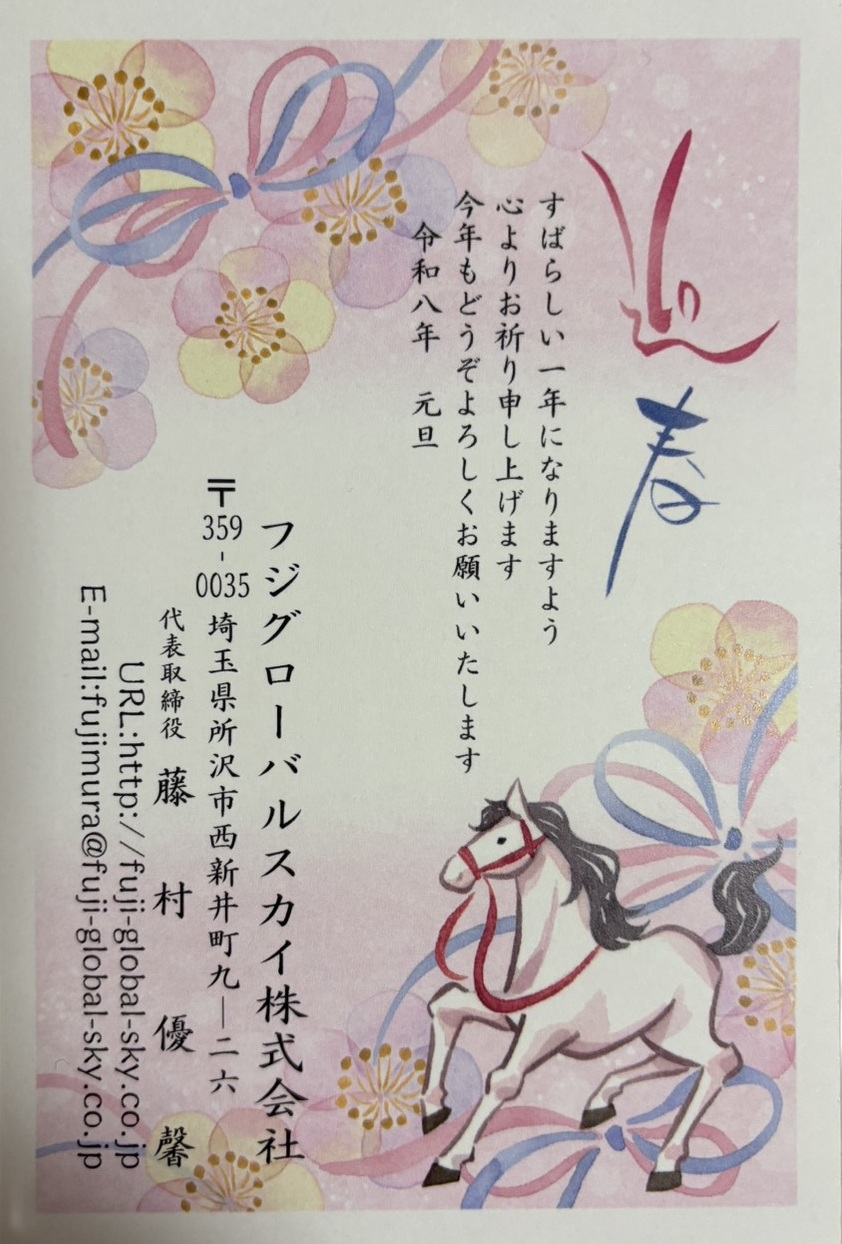 迎春
すばらしい一年になりますよう
心よりお祈り申し上げます
今年もどうぞよろしくお願いいたします
令和八年 元旦
フジグローバルスカイ株式会社
〒359-0035 埼玉県所沢市西新井町九―二六
代表取締役 藤村優馨
URL:http://fuji-global-sky.co.jp
E-mail:fujimura@fuji-global-sky.co.jp